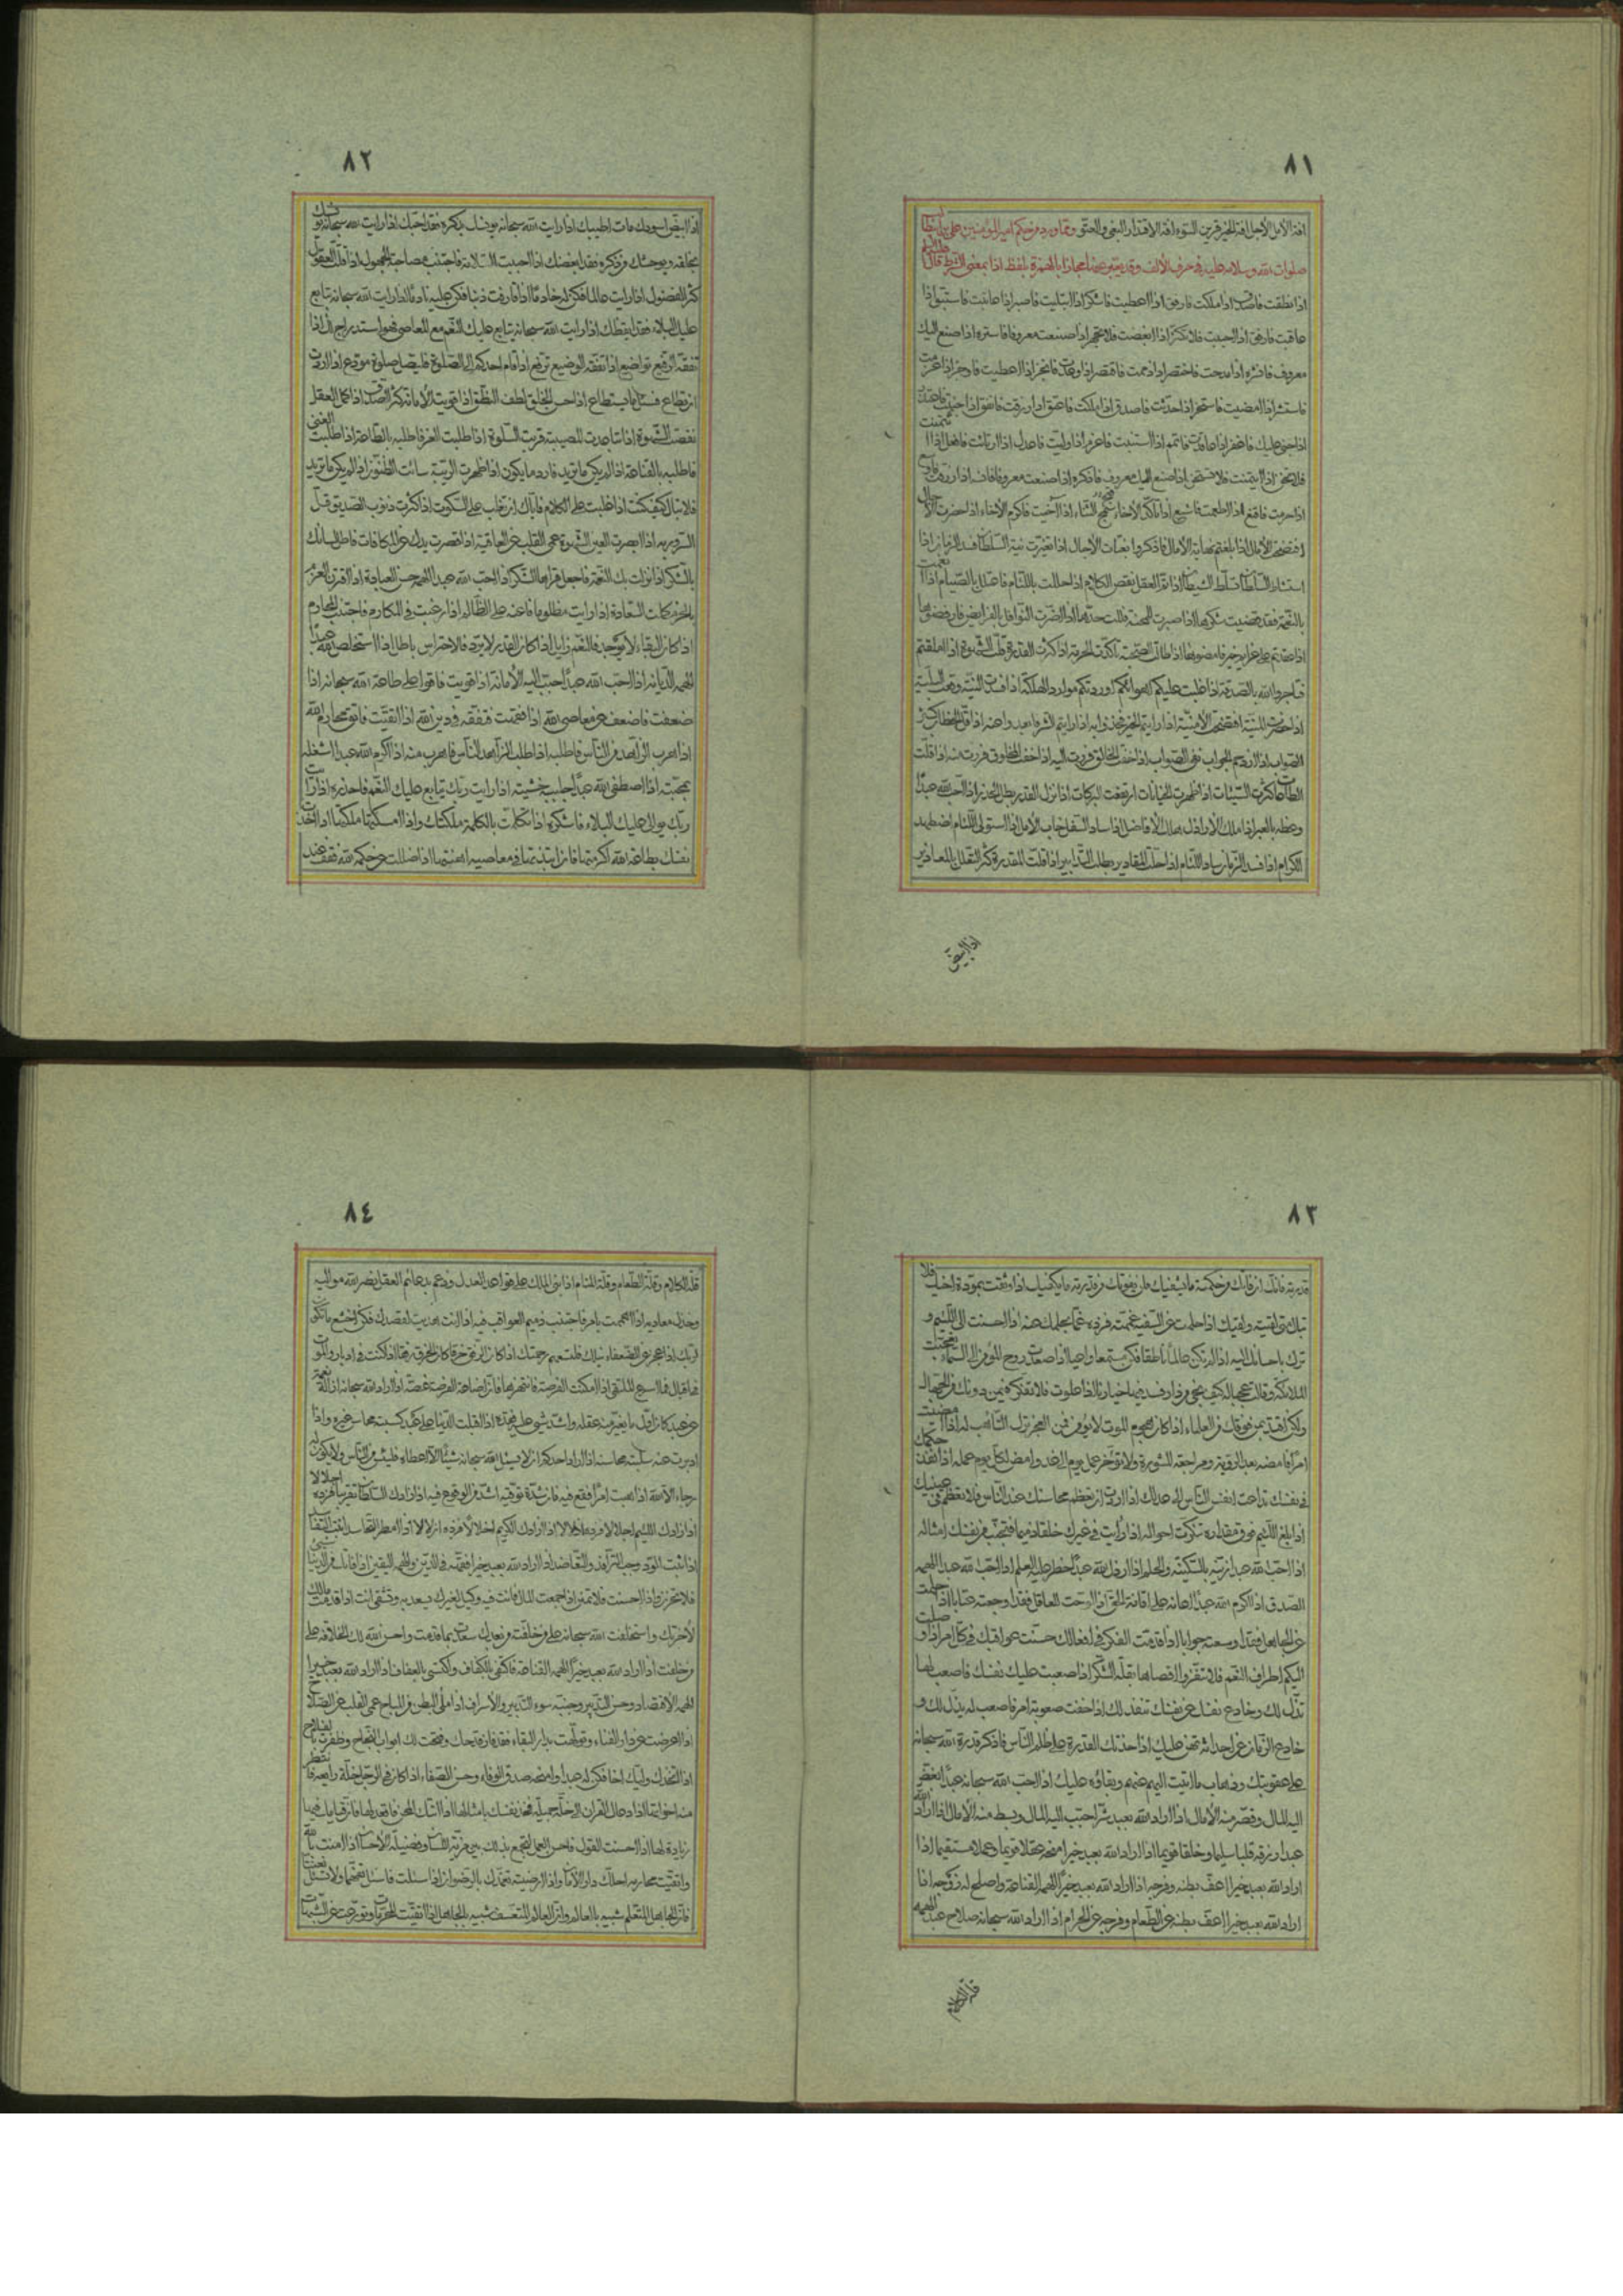 ٨١
افة الأمل الأجل افة الخير قرين السوء افة الاقتدار البغي والعتو ومما ورد من حكم امير المؤمنين علي بن ابيطالب
صلوات الله وسلامه عليه في حرف الألف بلفظ اذا بمعنى الشرط قال
اذا نطقت فاصدق اذا ملكت فارفق اذا اعطيت فاشكر اذا ابتليت فاصبر اذا عاتبت فاستبق اذا
عاقبت فارفق اذا احببت فلا تكثر اذا ابغضت فلا تهجر اذا صنعت معروفا فاستره اذا صنع اليك
معروف فانشره اذا مدحت فاختصر اذا ذممت فاقتصر اذا وعدت فانجز اذا اعطيت فاوجز اذا عزمت
فاستشر اذا امضيت فاستخر اذا حدثت فاصدق اذا ملكت فاعتق اذا رزقت فانفق اذا جنيت فاعتذر
اذا جني عليك فاغفر اذا عاهدت فاتمم اذا استنبت فاعزم اذا وليت فاعدل اذا ائتمنت
فلا تخن اذا صنع اليك معروف فاذكره اذا صنعت معروفا فانسه اذا رزقت فاوسع
اذا حرمت فاقنع اذا اطعمت فاشبع اذا تأكد الاخاء سمج الثناء اذا آخيت فاكرم الاخاء اذا حضرت الآجال
افتضحت الآمال اذا بلغتم نهاية الآمال فاذكروا بغتات الآجال اذا تغيرت نية السلطان فسد الزمان اذا
استشاط السلطان تسلط الشيطان اذا تم العقل نقص الكلام اذا حللت باللئام فاعتلل بالصيام اذا
اذا عقدتم على عزايم خير فامضوها اذا طالت الصحبة تأكدت الحرمة اذا كثرت القدرة قلت الشهوة اذا املقتم
فتاجروا الله بالصدقة اذا غلبت عليكم اهوائكم اوردتكم موارد الهلكة اذا فسدت النية وقعت البلية
اذا حضرت المنية افتضحت الامنية اذا رايتم الخير فخذوا به اذا رايتم الشر فابعدوا عنه اذا قل الخطاب كثر
الصواب اذا ازدحم الجواب نفى الصواب اذا خفت الخالق فررت اليه اذا خفت المخلوق فررت منه اذا قلت
الطاعات كثرت السيئات اذا ظهرت الخيانات ارتفعت البركات اذا نزل القدر بطل الحذر اذا احب الله عبدا
وعظه بالعبر اذا ملك الأراذل هلك الأفاضل اذا ساد السفل خاب الأمل اذا استولى اللئام اضطهد
الكرام اذا فسد الزمان ساد اللئام اذا حلت المقادير بطلت التدابير اذا قلت المقدرة كثر التعلل بالمعاذير
اذا ابيض
٨٢
اذا ابيض اسودك مات اطيبك اذا رايت الله سبحانه يونسك بذكره فقد احبك اذا رايت الله سبحانه يونسك
بخلقه ويوحشك من ذكره فقد ابغضك اذا احببت السلامة فاجتنب مصاحبة الجهول اذا قلت العقول
كثر الفضول اذا رايت عالما فكن له خادما اذا قارفت ذنبا فكن عليه نادما اذا رايت الله سبحانه يتابع
عليك البلاء فقد ايقظك اذا رايت الله سبحانه يتابع عليك النعم مع المعاصي فهو استدراج لك اذا
تفقه الرفيع تواضع اذا تفقه الوضيع ترفع اذا قام احدكم الى الصلوة فليصل صلوة مودع اذا اردت
ان تطاع فسئل ما يستطاع اذا حسن الخلق لطف النطق اذا قويت الأمانة كثر الصدق اذا كمل العقل
نقصت الشهوة اذا تباعدت المصيبة قربت السلوة اذا طلبت العز فاطلبه بالطاعة اذا طلبت الغنى
فاطلبه بالقناعة اذا لم يكن ما تريد فارد ما يكون اذا ظهرت الريبة سائت الظنون اذا لم يكن ما تريد
فلا تبال كيف كنت اذا غلبت على الكلام فاياك ان تغلب على السكوت اذا كثرت ذنوب الصديق قل
السرور به اذا ابصرت العين الشهوة عمي القلب عن العاقبة اذا قصرت يدك عن المكافات فاطل لسانك
بالشكر اذا نزلت بك النعمة فاجعل قراها الشكر اذا احب الله عبدا الهمه حسن العبادة اذا اقترن العزم
بالحزم كملت السعادة اذا رايت مظلوما فاعنه على الظالم اذا رغبت في المكارم فاجتنب المحارم
اذا كان البقاء لا يوجد فالنعيم زايل اذا كان القدر لا يرد فالاحتراس باطل اذا استخلص الله عبدا
الهمه الديانة اذا احب الله عبدا حبب اليه الأمانة اذا قويت فاقو على طاعة الله سبحانه اذا
ضعفت فاضعف عن معاصي الله اذا تفقهت فتفقه في دين الله اذا اتقيت فاتق محارم الله
اذا هرب الزاهد من الناس فاطلبه اذا طلب الزاهد الناس فاهرب منه اذا اكرم الله عبدا اشغله
بمحبته اذا اصطفى الله عبدا جلببه خشيته اذا رايت ربك يتابع عليك النعم فاحذره اذا رايت
ربك يوالي عليك البلاء فاشكره اذا تكلمت بالكلمة ملكتك واذا امسكتها ملكتها اذا اخذت
نفسك بطاعة الله اكرمتها وان ابتذلتها في معاصيه اهنتها اذا ضللت عن حكمة الله فقف عند
٨٣
قدرته فانك ان فاتك من حكمته ما يشفيك فلن يفوتك من قدرته ما يكفيك اذا وثقت بمودة اخيك فلا
تبال متى لقيته ولقيك اذا حلمت عن السفيه غممته فزده غما بحلمك عنه اذا احسنت الى اللئيم
وترك باحسانك اليه اذا لم تكن عالما ناطقا فكن مستمعا واعيا اذا صعدت روح المؤمن الى السماء تعجبت
الملائكة وقالت عجبا له كيف نجى من دار فسد فيها خيارنا اذا علوت فلا تفكر فيمن دونك من الجهال
ولكن اقتد بمن فوقك من العلماء اذا كان هجوم الموت لا يؤمن فمن العجز ترك التأهب له اذا امضيت
امرا فامضه بعد الروية ومراجعة المشورة ولا تؤخر عمل يوم الى غد وامض لكل يوم عمله اذا نفذ حكمك
في نفسك تداعت انفس الناس الى عدلك اذا اردت ان تعظم محاسنك عند الناس فلا تعظم في عينيك
اذا بلغ اللئيم فوق مقداره تنكرت احواله اذا رأيت في غيرك خلقا ذميما فتجنب من نفسك امثاله
اذا احب الله عبدا زينه بالسكينة والحلم اذا ارذل الله عبدا حظر عليه العلم اذا احب الله عبدا الهمه
الصدق اذا اكرم الله عبدا اعانه على اقامة الحق اذا لوحت للعاقل فقد اوجعته عتابا اذا حلمت
عن الجاهل فقد اوسعته جوابا اذا قدمت الفكر في افعالك حسنت عواقبك في كل امر اذا وصلت
اليكم اطراف النعم فلا تنفروا اقصاها بقلة الشكر اذا صعبت عليك نفسك فاصعب لها
تذل لك وخادع نفسك عن نفسك تنقد لك اذا خفت صعوبة امر فاصعب له يذل لك
وخادع الزمان عن احداثه تهن عليك اذا حدتك القدرة على ظلم الناس فاذكر قدرة الله سبحانه
على عقوبتك وذهاب ما اتيت اليهم عنهم وبقاؤه عليك اذا احب الله سبحانه عبدا بغض
اليه المال وقصر منه الآمال اذا اراد الله بعبد شرا حبب اليه المال وبسط منه الآمال اذا اراد الله
عبدا رزقه قلبا سليما وخلقا قويما اذا اراد الله بعبد خيرا منحه عقلا قويما وعملا مستقيما اذا
اراد الله بعبد خيرا اعف بطنه وفرجه اذا اراد الله بعبد خيرا الهمه القناعة واصلح له زوجه اذا
اراد الله بعبد خيرا اعف بطنه عن الطعام وفرجه عن الحرام اذا اراد الله سبحانه صلاح عبد الهمه
قلة الكلام
٨٤
قلة الكلام وقلة الطعام وقلة المنام اذا بنى الملك على قواعد العدل ودعم بدعائم العقل نصر الله مواليه
وخذل معاديه اذا هممت بامر فاجتنب ذميم العواقب فيه اذا انت هديت لقصدك فكن اخشع ما تكون
لربك اذا عجز عن الضعفاء نيلك فلتسعهم رحمتك اذا كان الرفق خرقا كان الخرق رفقا اذا كنت في ادبار والموت
في اقبال فما اسرع الملتقى اذا امكنت الفرصة فانتهزها فان اضاعة الفرصة غصة اذا اراد الله سبحانه ازالة نعمة
عن عبد كان اول ما يغير منه عقله واشد شيء عليه فقده اذا اقبلت الدنيا على عبد كسبته محاسن غيره واذا
ادبرت عنه سلبته محاسنه اذا اراد احدكم ان لا يسئل الله سبحانه شيئا الا اعطاه فلييئس من الناس ولا يكون له
رجاء الا الله اذا هبت امرا فقع فيه فان شدة توقيه اشد من الوقوع فيه اذا زادك السلطان تقريبا فزده اجلالا
اذا زادك اللئيم اجلالا فزده اذلالا
اذا ثبت الود وجب الترافد والتعاضد اذا اراد الله بعبد خيرا فقهه في الدين والهمه اليقين اذا فاتك من الدنيا شيء
فلا تحزن واذا احسنت فلا تمنن اذا جمعت المال فانت فيه وكيل لغيرك يسعد به وتشقى انت اذا قدمت مالك
لآخرتك واستخلفت الله سبحانه على من خلفته من بعدك سعدت بما قدمت واحسن الله لك الخلافة على
من خلفت اذا اراد الله بعبد خيرا الهمه القناعة فاكتفى بالكفاف واكتسى بالعفاف اذا اراد الله بعبد خيرا
الهمه الاقتصاد وحسن التدبير وجنبه سوء التدبير والاسراف اذا ملئ البطن من المباح عمي القلب عن الصلاح
اذا اعرضت عن دار الفناء وتولهت بدار البقاء فقد فاز قدحك وفتحت لك ابواب النجاح وظفرت بالفلاح
اذا اتخذك وليك اخا فكن له عبدا وامنحه صدق الوفاء وحسن الصفاء اذا كان في الرجل خلة رايعة فانتظر
منه اخواتها اذا اتاك المحن فاقعد لها فان قيامك فيها
زيادة لها اذا احسنت القول فاحسن العمل لتجمع بذلك بين مزية اللسان وفضيلة الاحسان اذا امنت بالله
واتقيت محارمه احلك دار الأمان واذا ارضيته تغمدك بالرضوان اذا سئلت فاسئل تفقها ولا تسئل تعنتا
فان الجاهل المتعلم شبيه بالعالم وان العالم المتعسف شبيه بالجاهل اذا اتقيت المحرمات وتورعت عن الشبهات